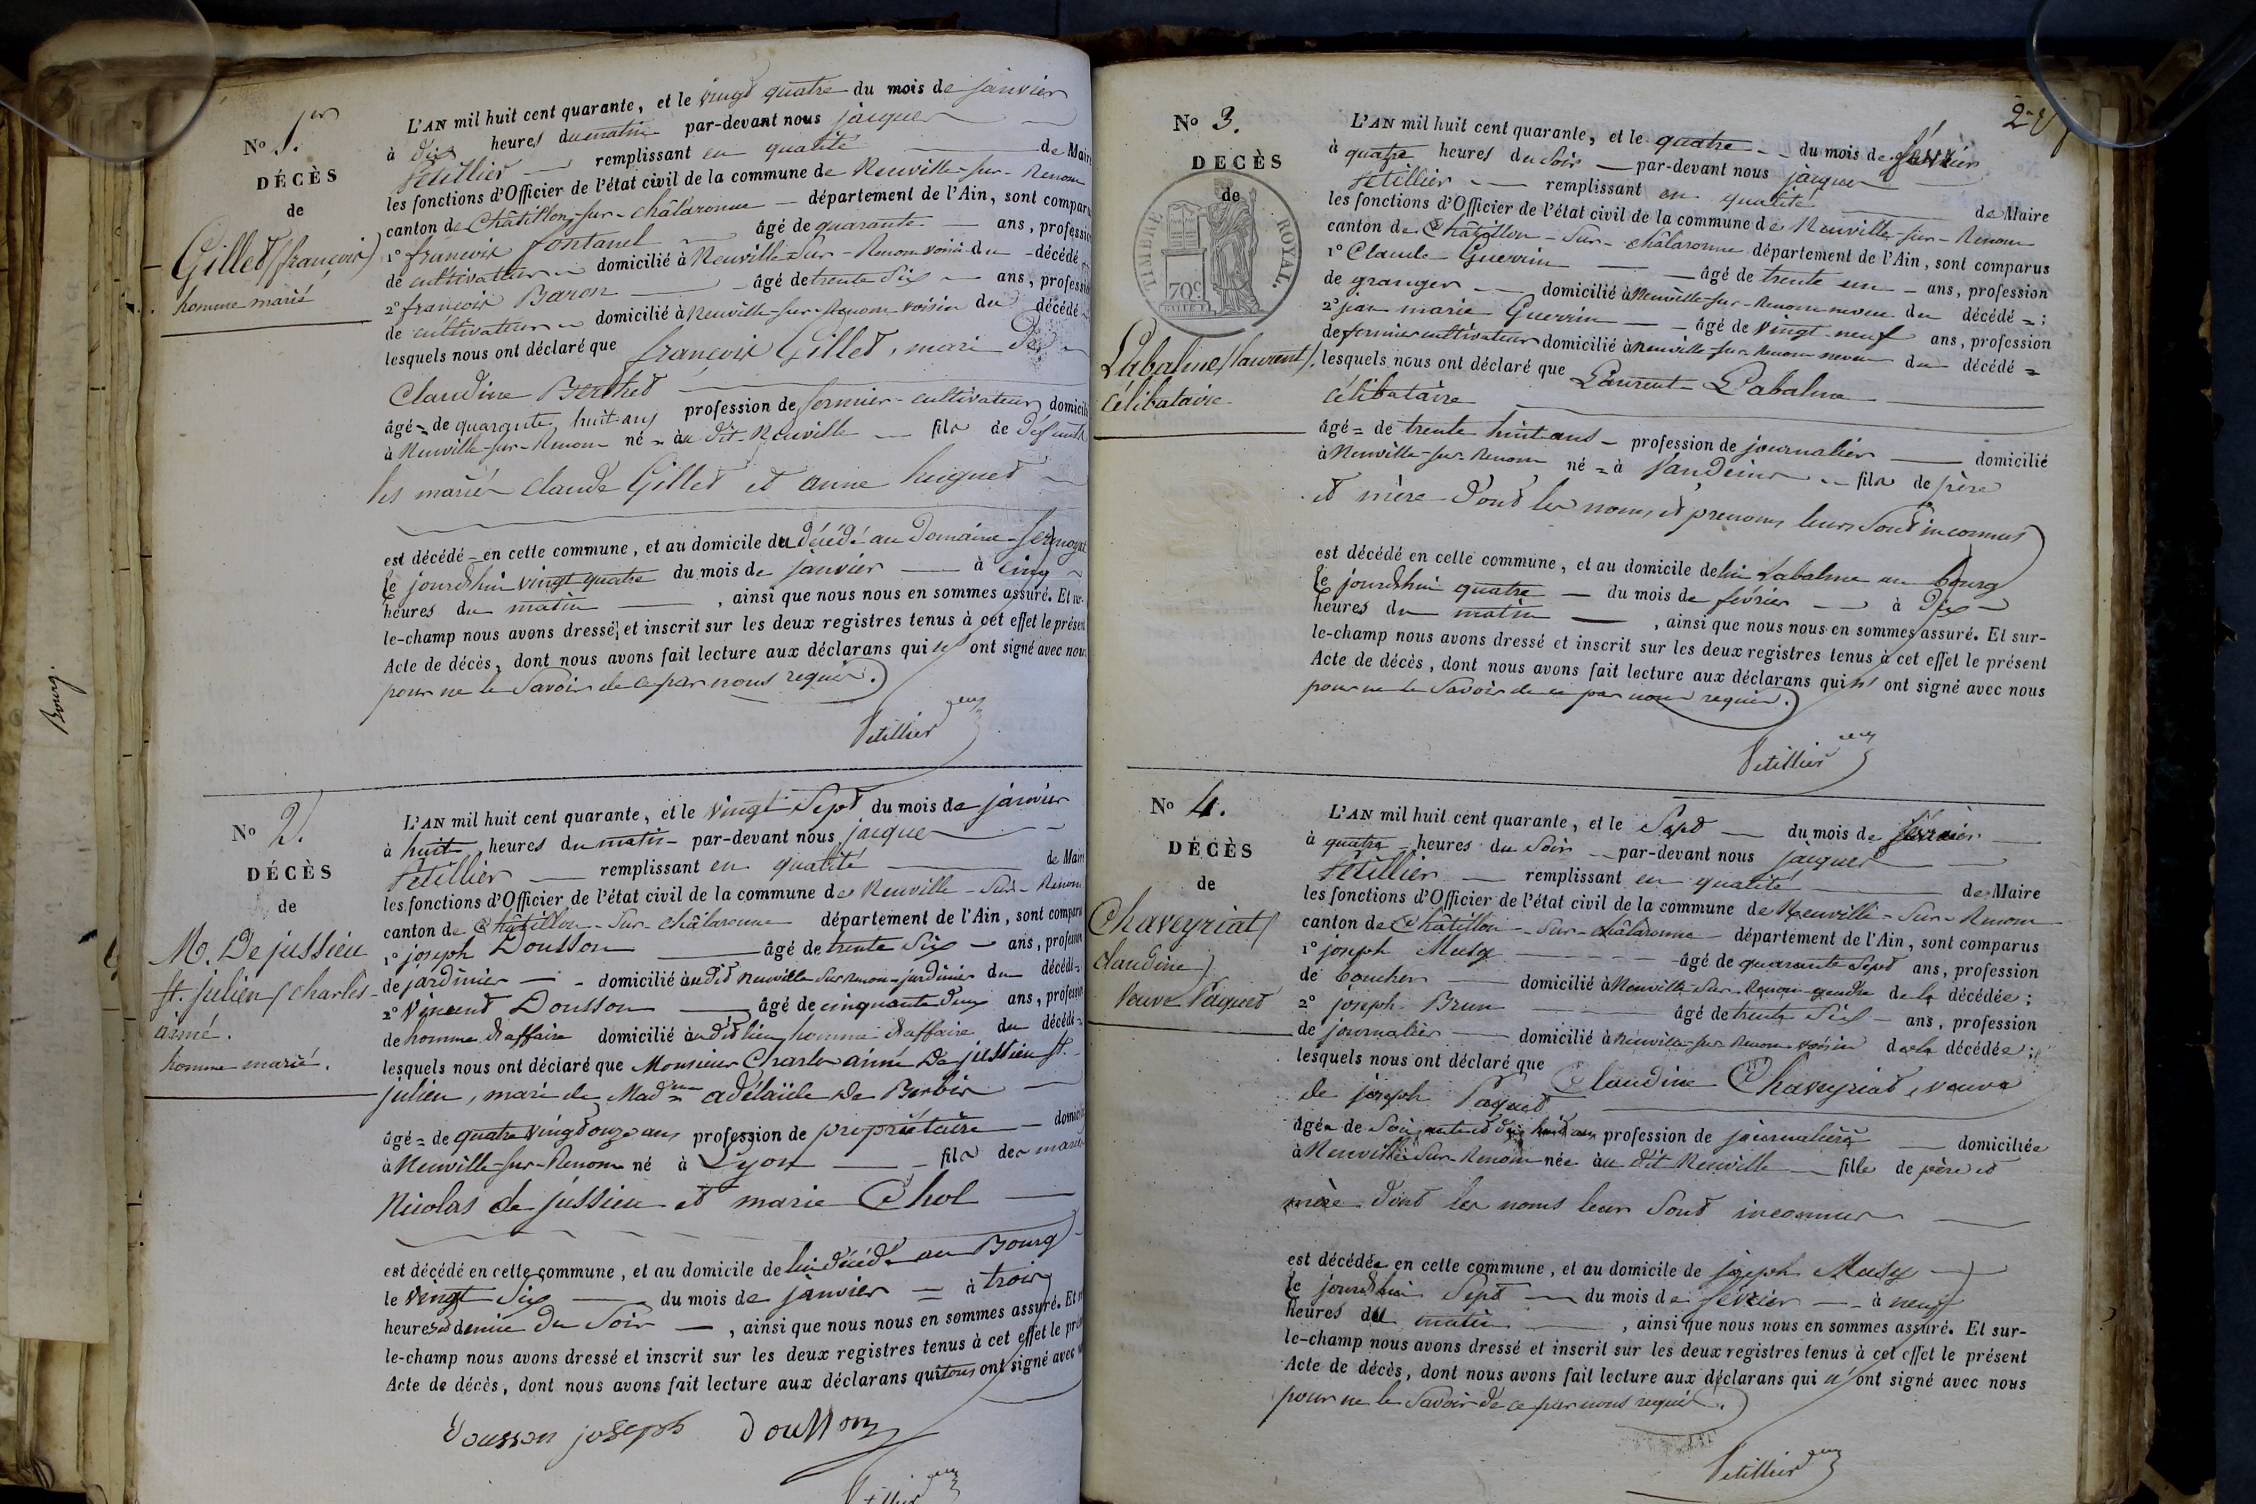 Bourg.
N° 1.er
DÉCÈS
de
Gillet (françois)
homme marié
L'AN mil huit cent quarante, et le vingt quatre du mois de janvier
à dix heures du matin par-devant nous jacques
Petillier remplissant en qualité de Maire
les fonctions d'Officier de l'état civil de la commune de Neuville-sur-Renom
canton de Châtillon-sur-Châlaronne département de l'Ain, sont compar
1° françois fontanel âgé de quarante ans, professio
de cultivateur domicilié à Neuville-Sur-Renom voisin du décédé
2° françois Baron âgé de trente Six ans, professi
de cultivateur domicilié à Neuville-sur-Renom voisin du décédé
lesquels nous ont déclaré que françois Gillet, mari de
Claudine Berthet
âgé de quarante huit ans profession de fermier-cultivateur domicili
à Neuville-sur-Renom né au dit Neuville fils de défunts
les mariés Claude Gillet et anne huguet
est décédé en cette commune, et au domicile du décédé au Domaine
le jourd'hui vingt quatre du mois de janvier à cinq
heures du matin , ainsi que nous nous en sommes assuré. Et sur-
le-champ nous avons dressé et inscrit sur les deux registres tenus à cet effet le présent
Acte de décès, dont nous avons fait lecture aux déclarans qui n' ont signé avec nous
pour ne le Savoir de ce par nous requis.
Petillier
N° 2.
DÉCÈS
de
M. De jussieu
st. julien (charles-
aimé.
homme marié.
L'AN mil huit cent quarante, et le vingt Sept du mois de janvier
à huit heures du matin par-devant nous jacques
Petillier remplissant en qualité de Maire
les fonctions d'Officier de l'état civil de la commune de Neuville-Sur-Renom
canton de Châtillon-Sur-Châlaronne département de l'Ain, sont comparu
1° joseph Dousson âgé de trente Six ans, profession
de jardinier domicilié au dit Neuville Sur Renom jardinier du décédé
2° Vincent Dousson âgé de cinquante deux ans, profession
de homme d'affaire domicilié au dit lieu homme d'affaire du décédé
lesquels nous ont déclaré que Monsieur Charles aimé De jussieu st.
julien, mari de Mad.me adélaïde De Berbis
âgé de quatre vingt onze ans profession de propriétaire domici
à Neuville-sur-Renom né à Lyon fils des mariés
Nicolas de jussieu et marie Chol
est décédé en cette commune, et au domicile de lui décédé au Bourg
le vingt Six du mois de janvier à trois
heures et demie du Soir , ainsi que nous nous en sommes assuré. Et
le-champ nous avons dressé et inscrit sur les deux registres tenus à cet effet le pré
Acte de décès, dont nous avons fait lecture aux déclarans qui tous ont signé avec
Dousson joseph Dousson
Petillier
N° 3.
DECÈS
de
TIMBRE ROYAL.
70c.
Labalme (laurent).
célibataire
L'AN mil huit cent quarante, et le quatre du mois de février
à quatre heures du Soir par-devant nous jacques
Petillier remplissant en qualité de Maire
les fonctions d'Officier de l'état civil de la commune de Neuville-sur-Renom
canton de Châtillon-Sur-Châlaronne département de l'Ain, sont comparus
1° Claude Guerrin âgé de trente un ans, profession
de granger domicilié à Neuville-sur-Renom neveu du décédé ;
2° jean marie Guerrin âgé de vingt neuf ans, profession
de fermier cultivateur domicilié à Neuville-sur-Renom neveu du décédé
lesquels nous ont déclaré que Laurent Labalme
célibataire
âgé de trente huit ans profession de journalier domicilié
à Neuville-sur-Renom né à Vandeins fils de père
et mère d'ont les noms et prenoms leurs Sont inconnus
est décédé en cette commune, et au domicile de lui Labalme au bourg
le jourd'hui quatre du mois de février à dix
heures du matin , ainsi que nous nous en sommes assuré. Et sur-
le-champ nous avons dressé et inscrit sur les deux registres tenus à cet effet le présent
Acte de décès, dont nous avons fait lecture aux déclarans qui n' ont signé avec nous
pour ne le Savoir de ce par nous requis.
Petillier
N° 4.
DÉCÈS
de
Chaveyriat (
claudine)
veuve Paquet
L'AN mil huit cent quarante, et le Sept du mois de février
à quatre heures du Soir par-devant nous jacques
Petillier remplissant en qualité de Maire
les fonctions d'Officier de l'état civil de la commune de Neuville-Sur-Renom
canton de Châtillon-Sur-Châlaronne département de l'Ain, sont comparus
1° joseph âgé de quarante Sept ans, profession
de boucher domicilié à Neuville-Sur-Renom gendre de la décédée ;
2° joseph Brun âgé de trente Six ans, profession
de journalier domicilié à Neuville-sur-Renom voisin de la décédée ;
lesquels nous ont déclaré que Claudine Chaveyriat, veuve
de joseph Paquet
âgée de Soixante et dix huit ans profession de journalière domiciliée
à Neuville Sur-Renom née au dit Neuville fille de père et
mère d'ont les noms leurs Sont inconnus
est décédée en cette commune, et au domicile de joseph
le jourd'hui Sept du mois de février à neuf
heures du matin , ainsi que nous nous en sommes assuré. Et sur-
le-champ nous avons dressé et inscrit sur les deux registres tenus à cet effet le présent
Acte de décès, dont nous avons fait lecture aux déclarans qui n' ont signé avec nous
pour ne le Savoir de ce par nous requis.
Petillier